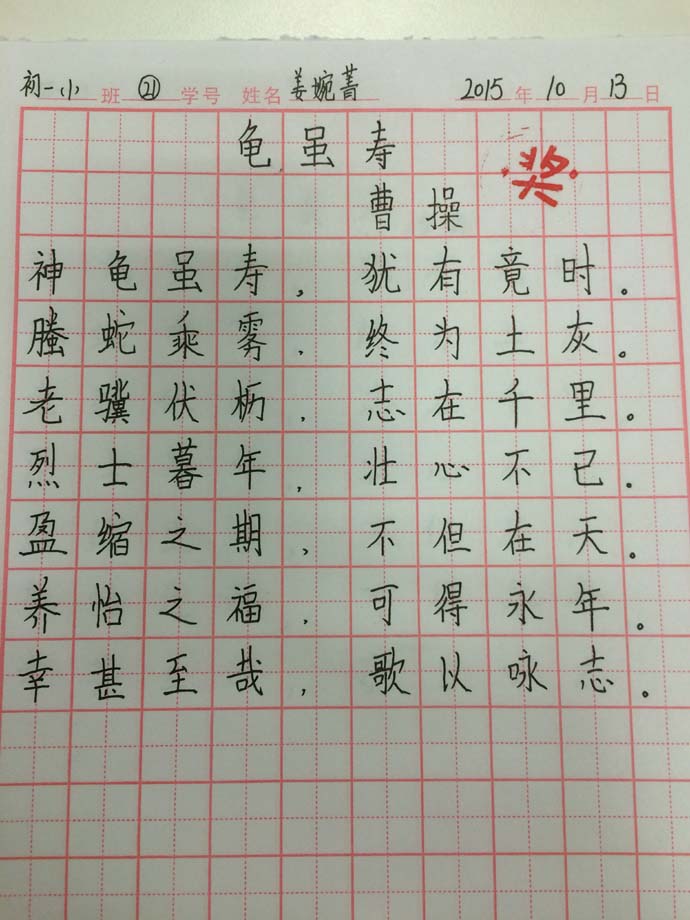 初一小班 ㉑ 学号 姓名 姜婉菁 2015年10月13日
龟虽寿
奖
曹操
神龟虽寿，犹有竟时。
螣蛇乘雾，终为土灰。
老骥伏枥，志在千里。
烈士暮年，壮心不已。
盈缩之期，不但在天。
养怡之福，可得永年。
幸甚至哉，歌以咏志。